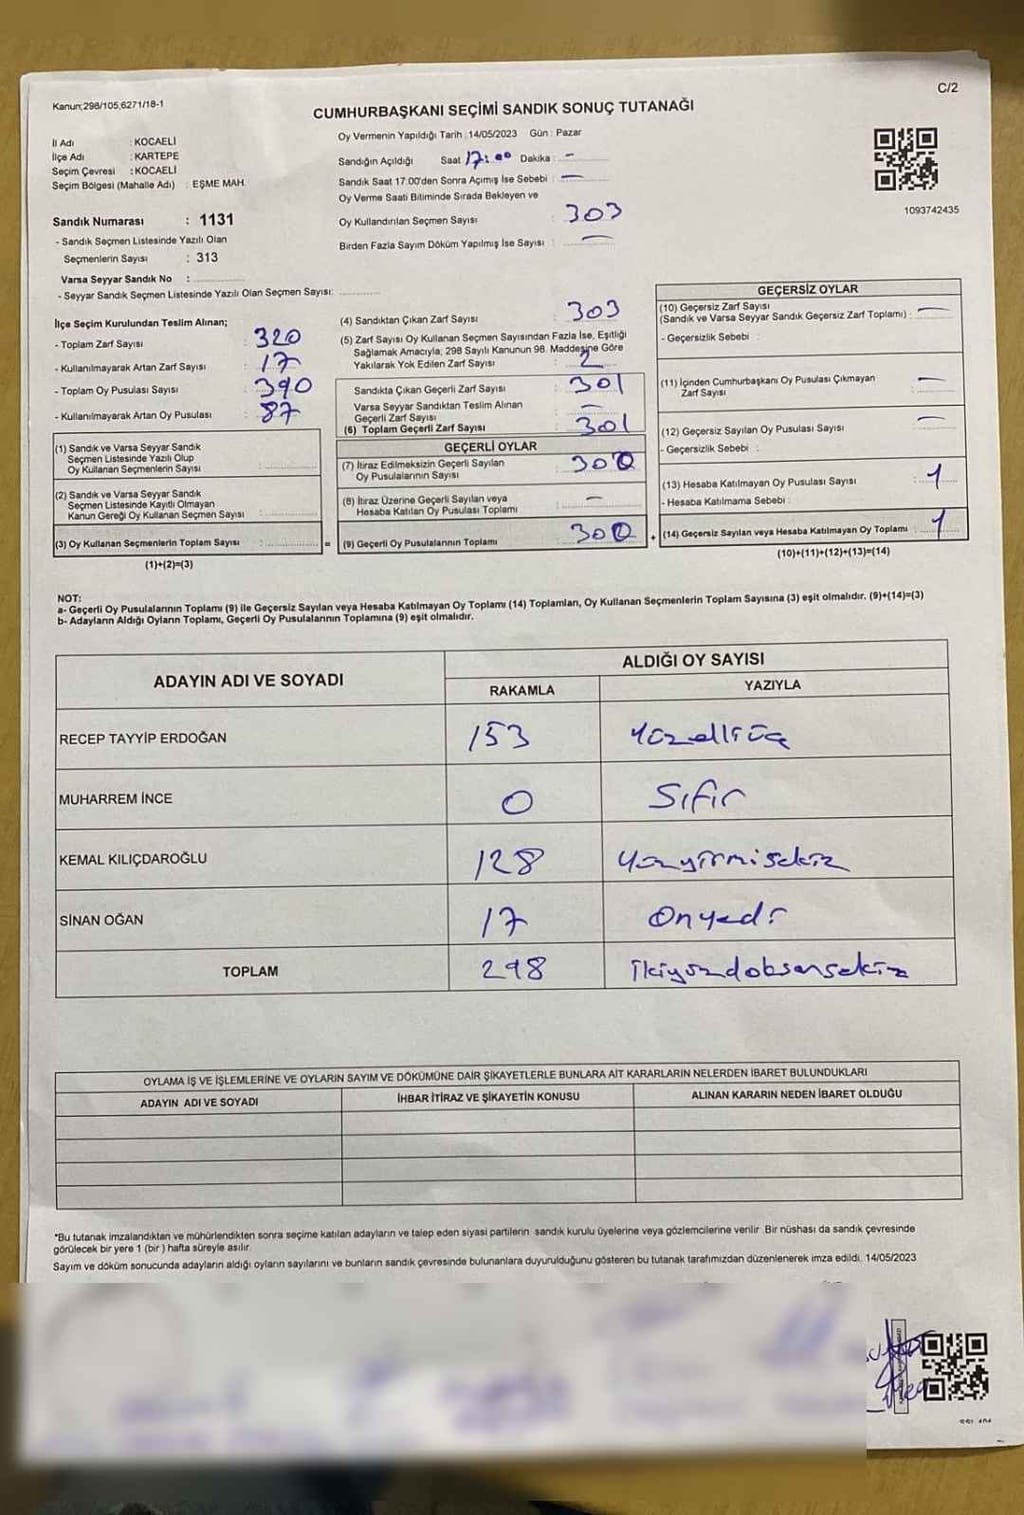 Kanun;298/105,6271/18-1
C/2
CUMHURBAŞKANI SEÇİMİ SANDIK SONUÇ TUTANAĞI
İl Adı : KOCAELİ
İlçe Adı : KARTEPE
Seçim Çevresi : KOCAELİ
Seçim Bölgesi (Mahalle Adı) : EŞME MAH.
Sandık Numarası : 1131
- Sandık Seçmen Listesinde Yazılı Olan
Seçmenlerin Sayısı : 313
Varsa Seyyar Sandık No :
- Seyyar Sandık Seçmen Listesinde Yazılı Olan Seçmen Sayısı:
Oy Vermenin Yapıldığı Tarih : 14/05/2023 Gün : Pazar
Sandığın Açıldığı Saat 17:00 Dakika : -
Sandık Saat 17:00'den Sonra Açımış İse Sebebi : -
Oy Verme Saati Bitiminde Sırada Bekleyen ve
Oy Kullandırılan Seçmen Sayısı : 303
Birden Fazla Sayım Döküm Yapılmış İse Sayısı : -
1093742435
İlçe Seçim Kurulundan Teslim Alınan;
- Toplam Zarf Sayısı : 320
- Kullanılmayarak Artan Zarf Sayısı : 17
- Toplam Oy Pusulası Sayısı : 390
- Kullanılmayarak Artan Oy Pusulası : 87
(1) Sandık ve Varsa Seyyar Sandık
Seçmen Listesinde Yazılı Olup
Oy Kullanan Seçmenlerin Sayısı :
(2) Sandık ve Varsa Seyyar Sandık
Seçmen Listesinde Kayıtlı Olmayan
Kanun Gereği Oy Kullanan Seçmen Sayısı :
(3) Oy Kullanan Seçmenlerin Toplam Sayısı : =
(1)+(2)=(3)
(4) Sandıktan Çıkan Zarf Sayısı : 303
(5) Zarf Sayısı Oy Kullanan Seçmen Sayısından Fazla İse, Eşitliği
Sağlamak Amacıyla; 298 Sayılı Kanunun 98. Maddesine Göre
Yakılarak Yok Edilen Zarf Sayısı : 2
Sandıkta Çıkan Geçerli Zarf Sayısı : 301
Varsa Seyyar Sandıktan Teslim Alınan
Geçerli Zarf Sayısı : -
(6) Toplam Geçerli Zarf Sayısı : 301
GEÇERLİ OYLAR
(7) İtiraz Edilmeksizin Geçerli Sayılan
Oy Pusulalarının Sayısı : 300
(8) İtiraz Üzerine Geçerli Sayılan veya
Hesaba Katılan Oy Pusulası Toplamı : -
(9) Geçerli Oy Pusulalarının Toplamı : 300 +
GEÇERSİZ OYLAR
(10) Geçersiz Zarf Sayısı
(Sandık ve Varsa Seyyar Sandık Geçersiz Zarf Toplamı) : -
- Geçersizlik Sebebi :
(11) İçinden Cumhurbaşkanı Oy Pusulası Çıkmayan
Zarf Sayısı : -
(12) Geçersiz Sayılan Oy Pusulası Sayısı : -
- Geçersizlik Sebebi :
(13) Hesaba Katılmayan Oy Pusulası Sayısı : 1
- Hesaba Katılmama Sebebi :
(14) Geçersiz Sayılan veya Hesaba Katılmayan Oy Toplamı : 1
(10)+(11)+(12)+(13)=(14)
NOT:
a- Geçerli Oy Pusulalarının Toplamı (9) ile Geçersiz Sayılan veya Hesaba Katılmayan Oy Toplamı (14) Toplamları, Oy Kullanan Seçmenlerin Toplam Sayısına (3) eşit olmalıdır. (9)+(14)=(3)
b- Adayların Aldığı Oyların Toplamı, Geçerli Oy Pusulalarının Toplamına (9) eşit olmalıdır.
ADAYIN ADI VE SOYADI
ALDIĞI OY SAYISI
RAKAMLA YAZIYLA
RECEP TAYYİP ERDOĞAN 153 Yüzelliüç
MUHARREM İNCE 0 Sıfır
KEMAL KILIÇDAROĞLU 128 Yüzyirmisekiz
SİNAN OĞAN 17 Onyedi
TOPLAM 298 ikiyüzdoksansekiz
OYLAMA İŞ VE İŞLEMLERİNE VE OYLARIN SAYIM VE DÖKÜMÜNE DAİR ŞİKAYETLERLE BUNLARA AİT KARARLARIN NELERDEN İBARET BULUNDUKLARI
ADAYIN ADI VE SOYADI İHBAR İTİRAZ VE ŞİKAYETİN KONUSU ALINAN KARARIN NEDEN İBARET OLDUĞU
*Bu tutanak imzalandıktan ve mühürlendikten sonra seçime katılan adayların ve talep eden siyasi partilerin sandık kurulu üyelerine veya gözlemcilerine verilir. Bir nüshası da sandık çevresinde
görülecek bir yere 1 (bir) hafta süreyle asılır.
Sayım ve döküm sonucunda adayların aldığı oyların sayılarını ve bunların sandık çevresinde bulunanlara duyurulduğunu gösteren bu tutanak tarafımızdan düzenlenerek imza edildi. 14/05/2023